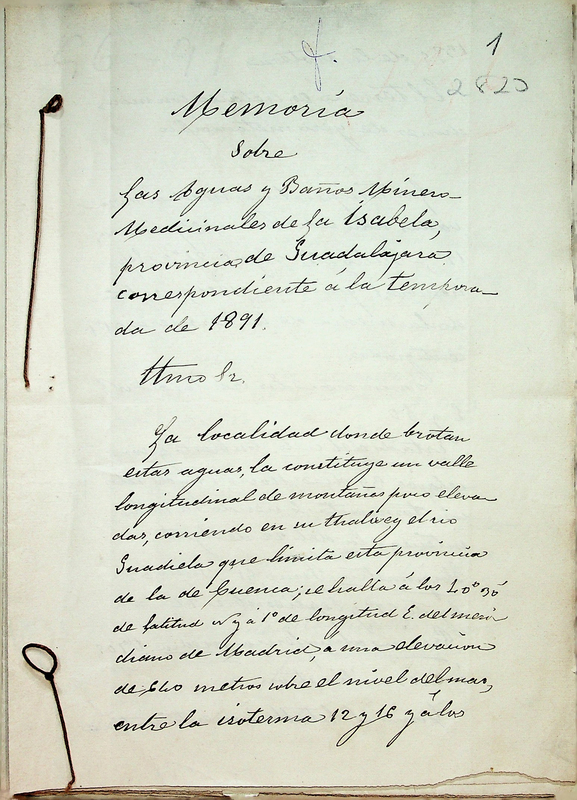 1
2820
Memoria
Sobre
Las Aguas y Baños Minero
Medicinales de La Isabela,
provincia de Guadalajara
correspondiente á la tempora_
da de 1891.
Ilmo Sr.
La localidad donde brotan
estas aguas, la constituye un valle
longitudinal de montañas poco eleva
das, corriendo en su thalweg el rio
Guadiela que limita esta provincia
de la de Cuenca; se halla á los 40°
de latitud N y á 1° de longitud E. del meri
diano de Madrid, á una elevacion
de 640 metros sobre el nivel del mar,
entre la isoterma 12 y 16 y á los